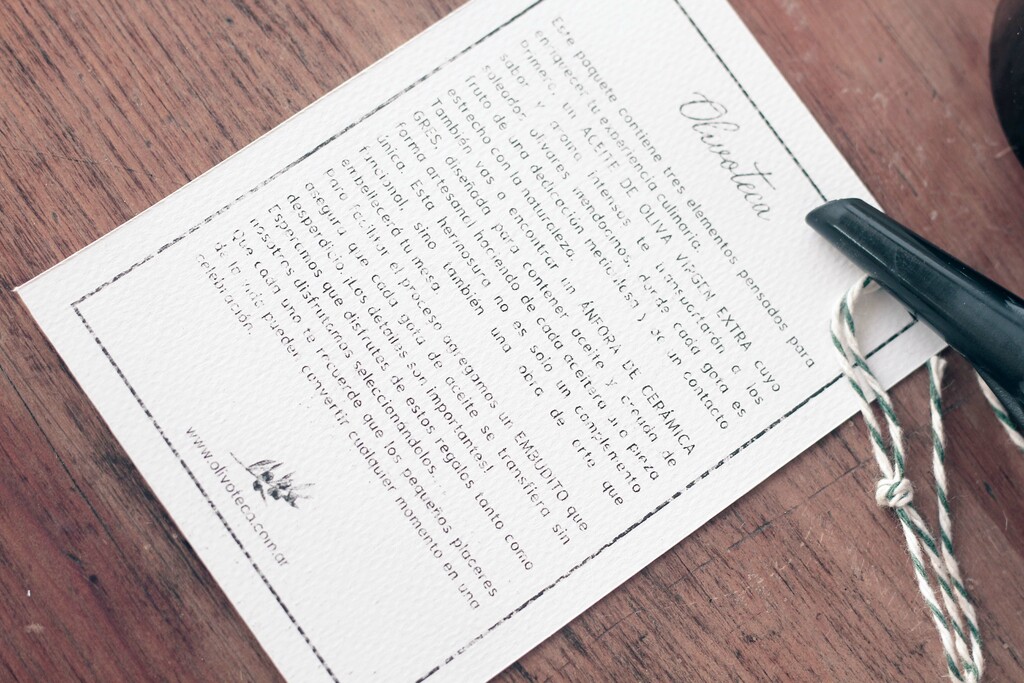 Olivoteca
Este paquete contiene tres elementos pensados para
enriquecer tu experiencia culinaria.
Primero, un ACEITE DE OLIVA VIRGEN EXTRA cuyo
sabor y aroma intensos te transportarán a los
soleados olivares mendocinos, donde cada gota es
fruto de una dedicación meticulosa y de un contacto
estrecho con la naturaleza.
También vas a encontrar un ÁNFORA DE CERÁMICA
GRES, diseñada para contener aceite y creada de
forma artesanal haciendo de cada aceitera una pieza
única. Esta hermosura no es solo un complemento
funcional, sino también una obra de arte que
embellecerá tu mesa.
Para facilitar el proceso agregamos un EMBUDITO que
asegura que cada gota de aceite se transfiera sin
desperdicio. ¡Los detalles son importantes!
Esperamos que disfrutes de estos regalos tanto como
nosotros disfrutamos seleccionándolos.
Que cada uno te recuerde que los pequeños placeres
de la vida pueden convertir cualquier momento en una
celebración.
www.olivoteca.com.ar